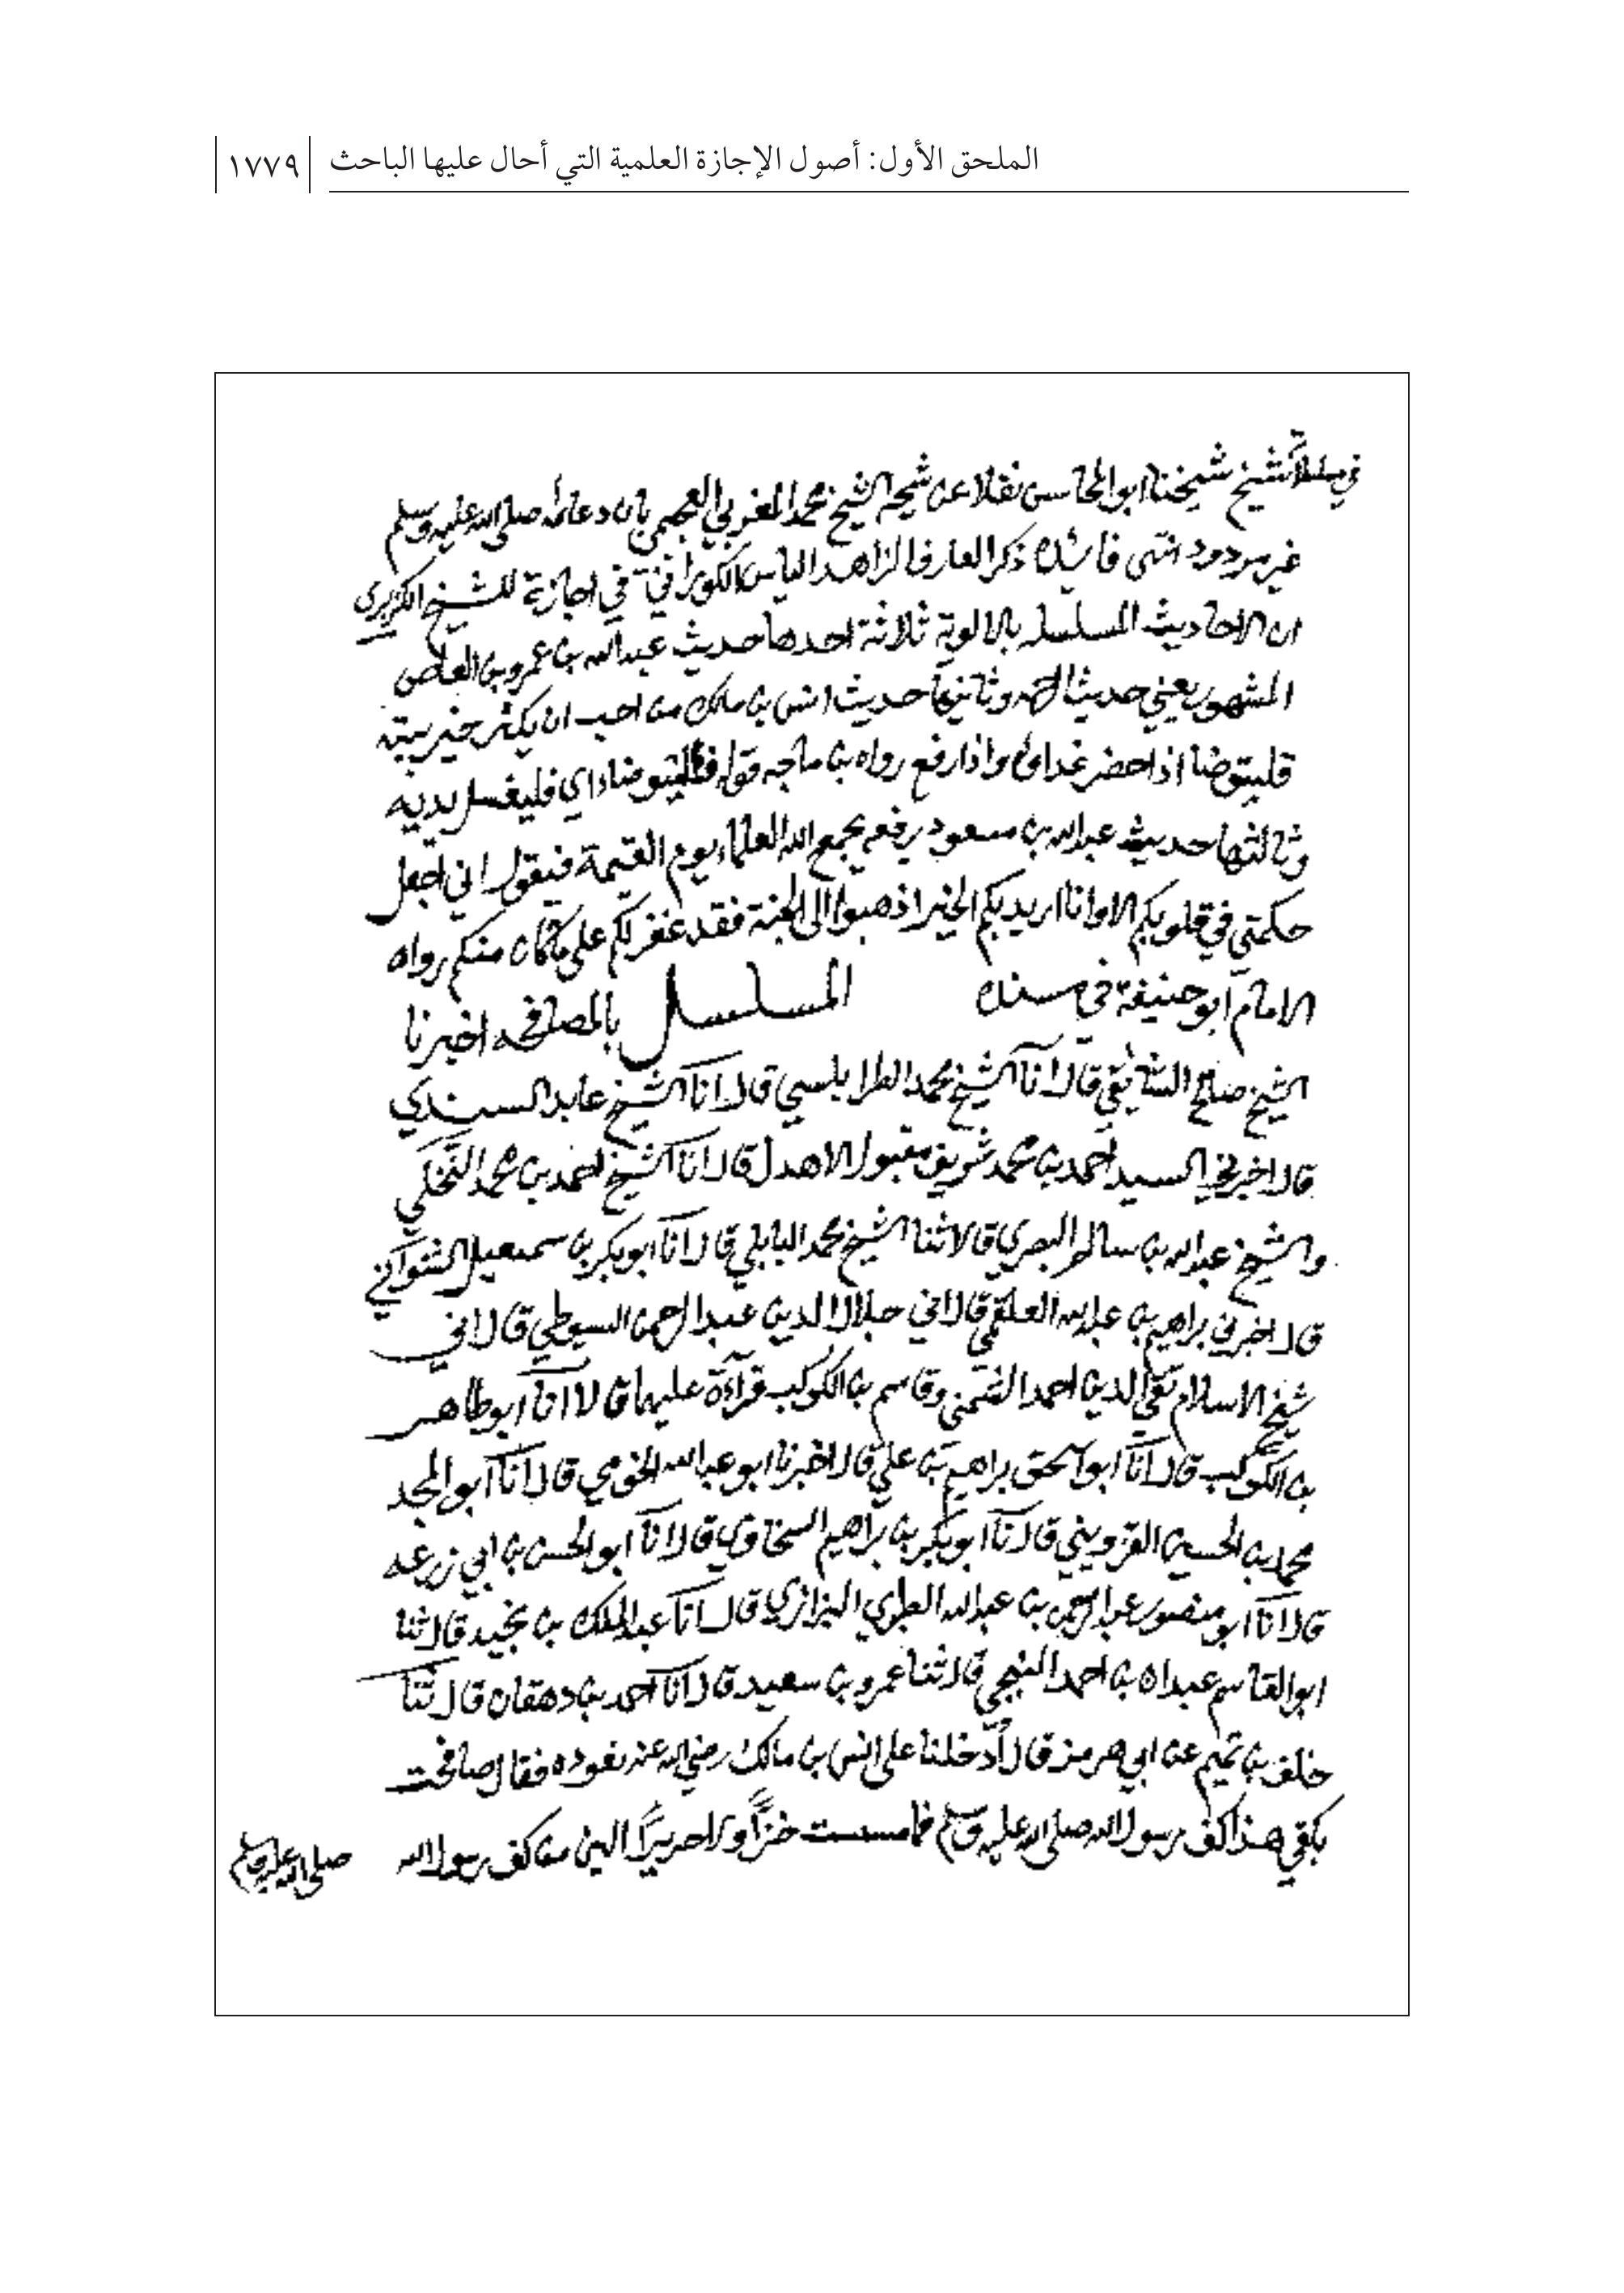 الملحق الأول: أصول الإجازة العلمية التي أحال عليها الباحث
١٧٧٩
شيخ شيخنا ابو المحاسن نقلا عن شيخه الشيخ محمد المغربي بان دعائه صلى الله عليه وسلم
غير مردود انتهى فائدة ذكر العارف الزاهد الياس الكوراني في اجازته للشيخ الكزبري
ان الاحاديث المسلسلة بالاولية ثلاثة احدها حديث عبد الله بن عمرو بن العاص
المشهور يعني حديث الرحمه وثانيها حديث انس بن ملك من احب ان يكثر خير بيته
فليتوضا اذا حضر غداؤه واذا رفع رواه بن ماجه قوله فليتوضا اي فليغسل يديه
وثالثها حديث عبد الله بن مسعود يرفعه يجمع الله العلماء يوم القيمة فيقول اني اجعل
حكمتي في قلوبكم الا وانا اريد بكم الخير اذهبوا الى الجنة فقد غفر لكم على ما كان منكم رواه
الامام ابو حنيفة في مسنده المسلسل بالمصافحه اخبرنا
الشيخ صالح قال انا الشيخ محمد الطرابلسي قال انا الشيخ عابد السندي
قال اخبرني السيد احمد بن محمد شريف مقبول الاهدل قال انا الشيخ احمد بن محمد النخلي
والشيخ عبد الله بن سالم البصري قالا ثنا الشيخ محمد البابلي قال انا ابو بكر بن سمعيل الشنواني
قال اخبرني براهيم بن عبد الله العلقمي قال اني جلال الدين عبد الرحمن السيوطي قال اني
شيخ الاسلام تقي الدين احمد الشمني وقاسم بن الكوكب قرآءة عليهما قالا انا ابو طاهر
بن الكوكب قال انا ابو اسحق براهيم بن علي قال اخبرنا ابو عبد الله الخويي قال انا ابو المجد
محمد بن الحسين القزويني قال انا ابو بكر بن براهيم قال انا ابو الحسن بن ابي زرعه
قال انا ابو منصور عبد الرحمن بن عبد الله البزازي قال انا عبد الملك بن نجيد قال ثنا
ابو القاسم عبدان بن احمد المنبجي قال ثنا عمرو بن سعيد قال انا احمد بن دهقان قال ثنا
خلف بن تميم عن ابي هرمز قال دخلنا على انس بن مالك رضي الله عنه نعوده فقال صافحت
بكفي هذا كف رسول الله صلى الله عليه وسلم فما مسست خزا ولا حريرا الين من كف رسول الله صلى الله عليه وسلم